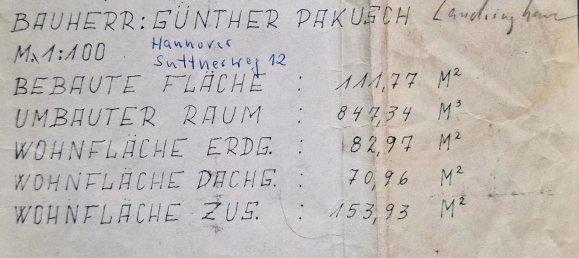 BAUHERR: GÜNTHER PAKUSCH
M. 1:100 Hannover
Suttnerweg 12
BEBAUTE FLÄCHE : 111,77 M²
UMBAUTER RAUM : 847,34 M³
WOHNFLÄCHE ERDG. : 82,97 M²
WOHNFLÄCHE DACHG. : 70,96 M²
WOHNFLÄCHE ZUS. : 153,93 M²